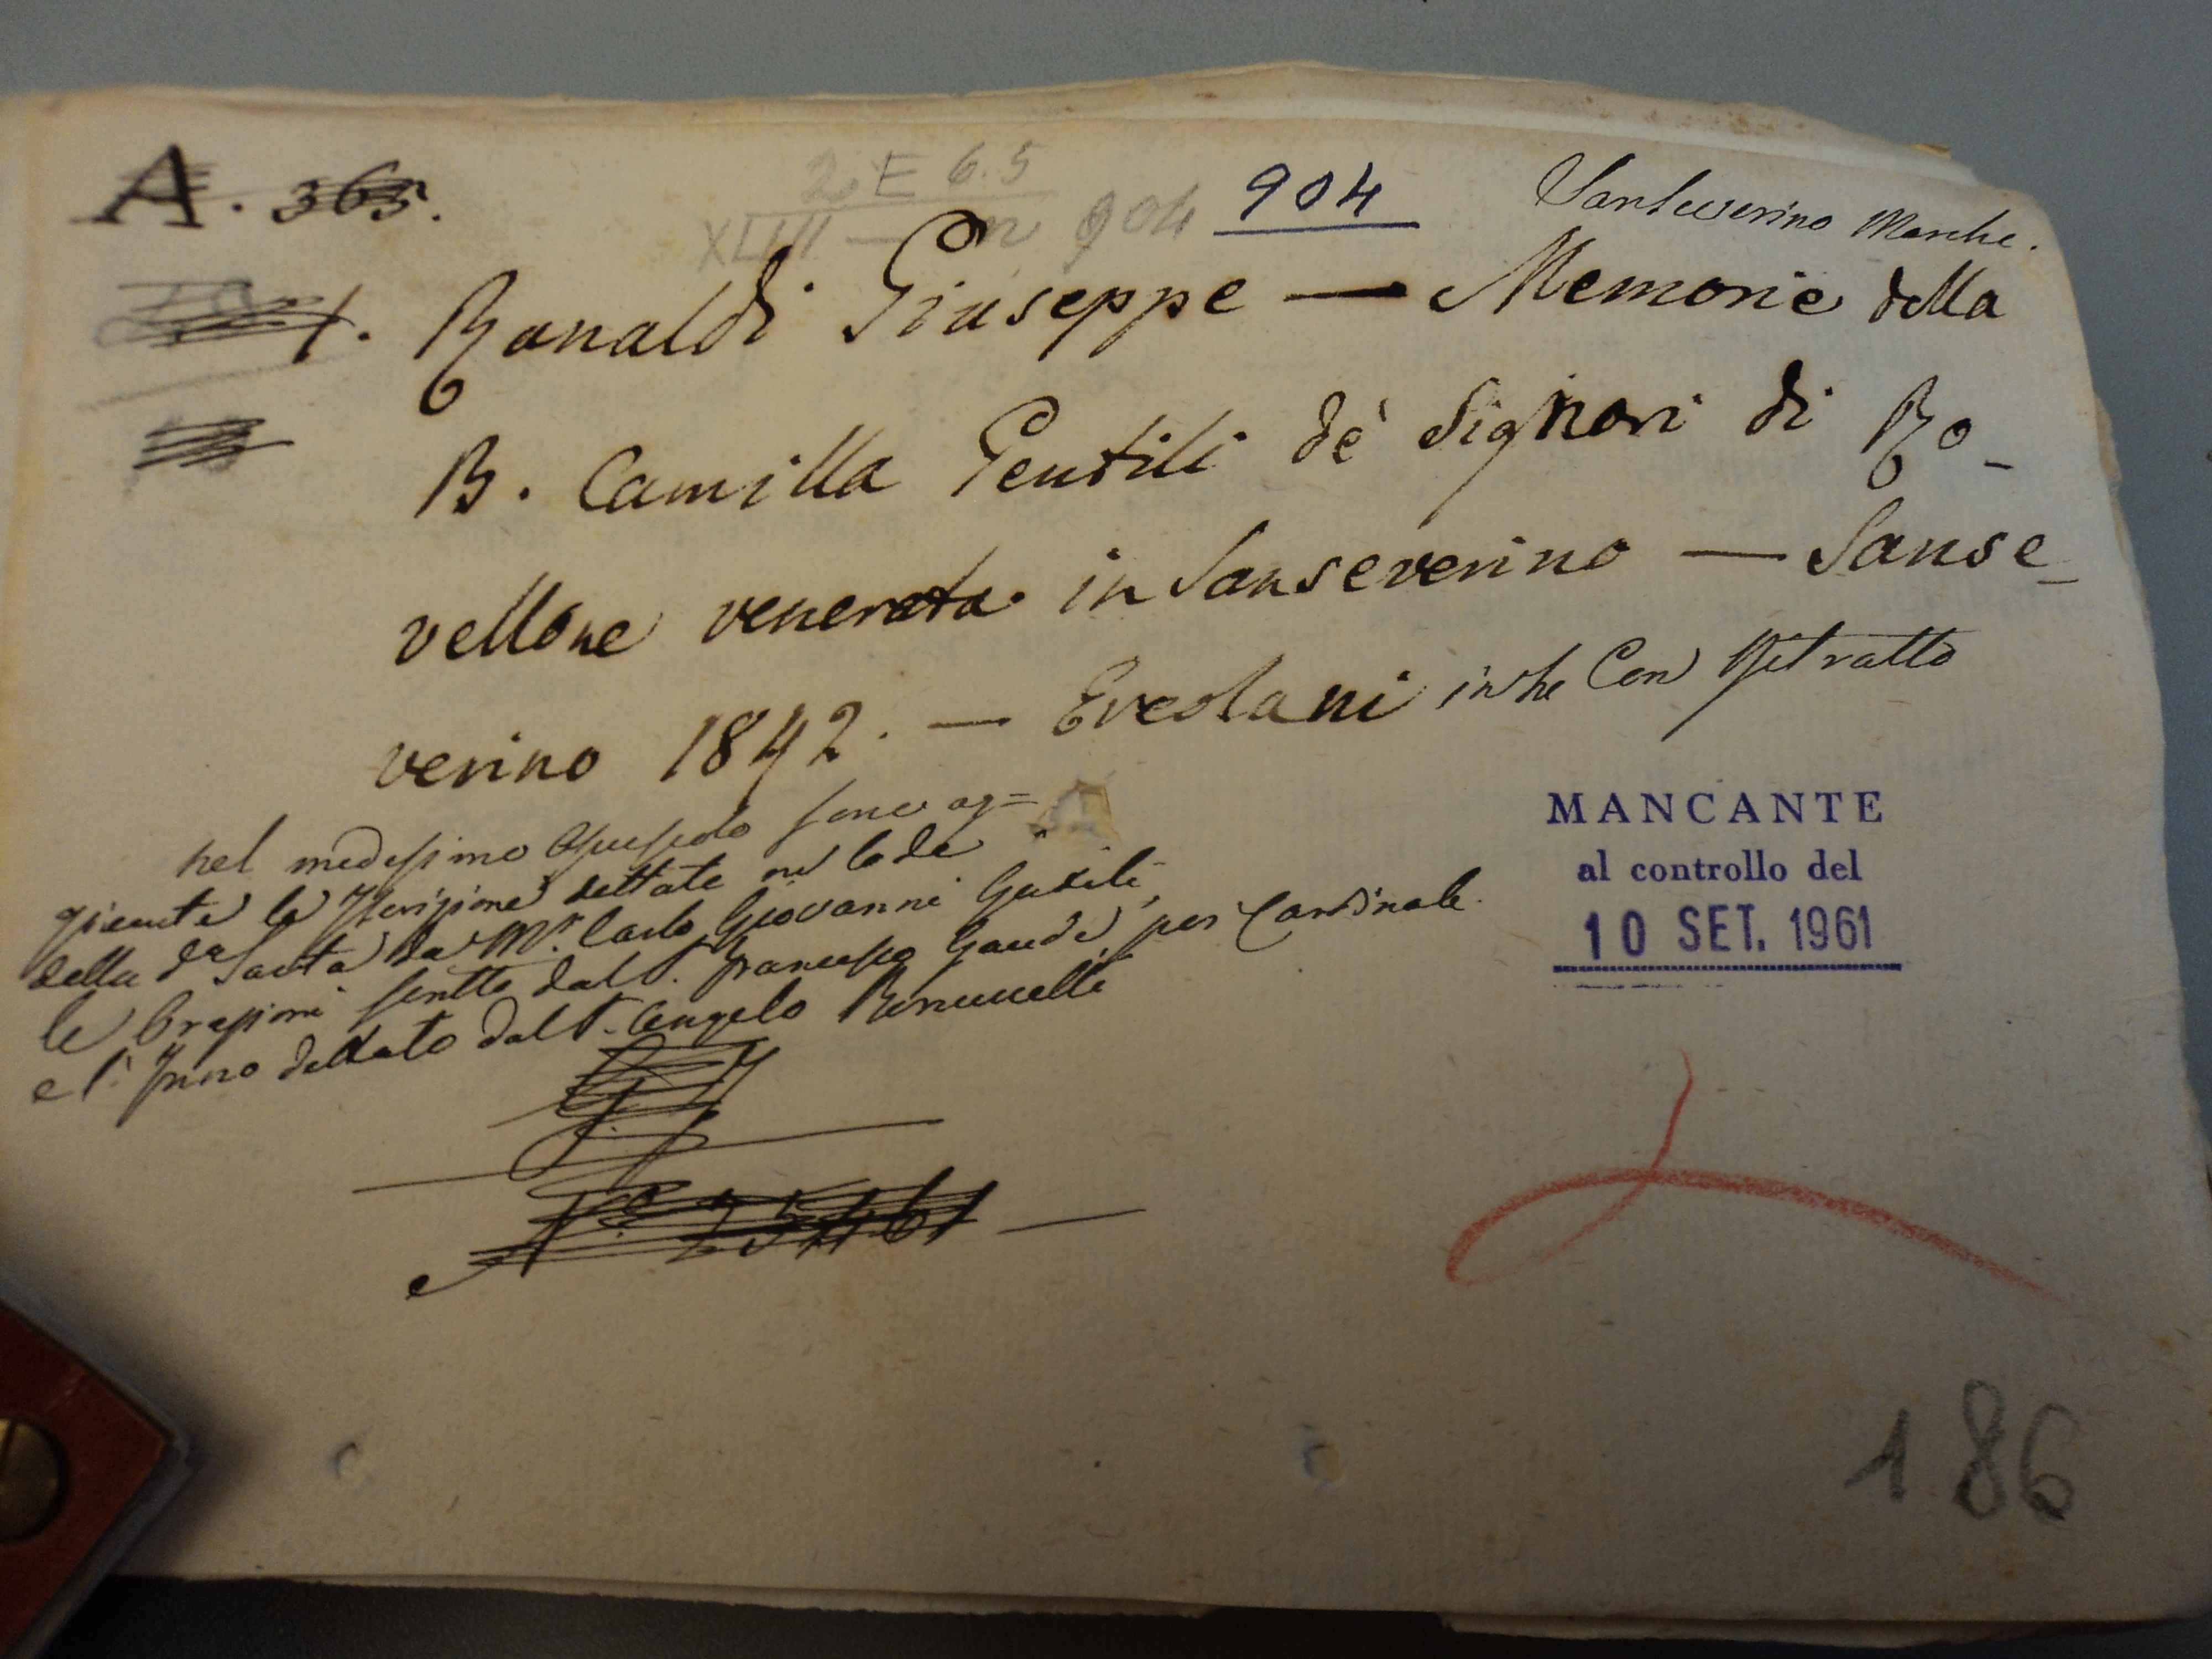 A. 365.
2 E 6.5
XLIII — n 904
904
Sanseverino Marche.
Ranaldi Giuseppe — Memorie della
B. Camilla Gentili de' Signori di Ro-
vellone venerata in Sanseverino — Sanse-
verino 1842. — Ercolani Con Ritratto
nel medesimo Opuscolo sono ag=
giunte le Iscrizioni dettate in lode
della da Santa da Mr. Carlo Giovanni Gentili,
le Orazioni scritte dal P. Francesco Gaude, poi Cardinale.
e l' Inno dettato dal P. Angelo
MANCANTE
al controllo del
10 SET. 1961
186